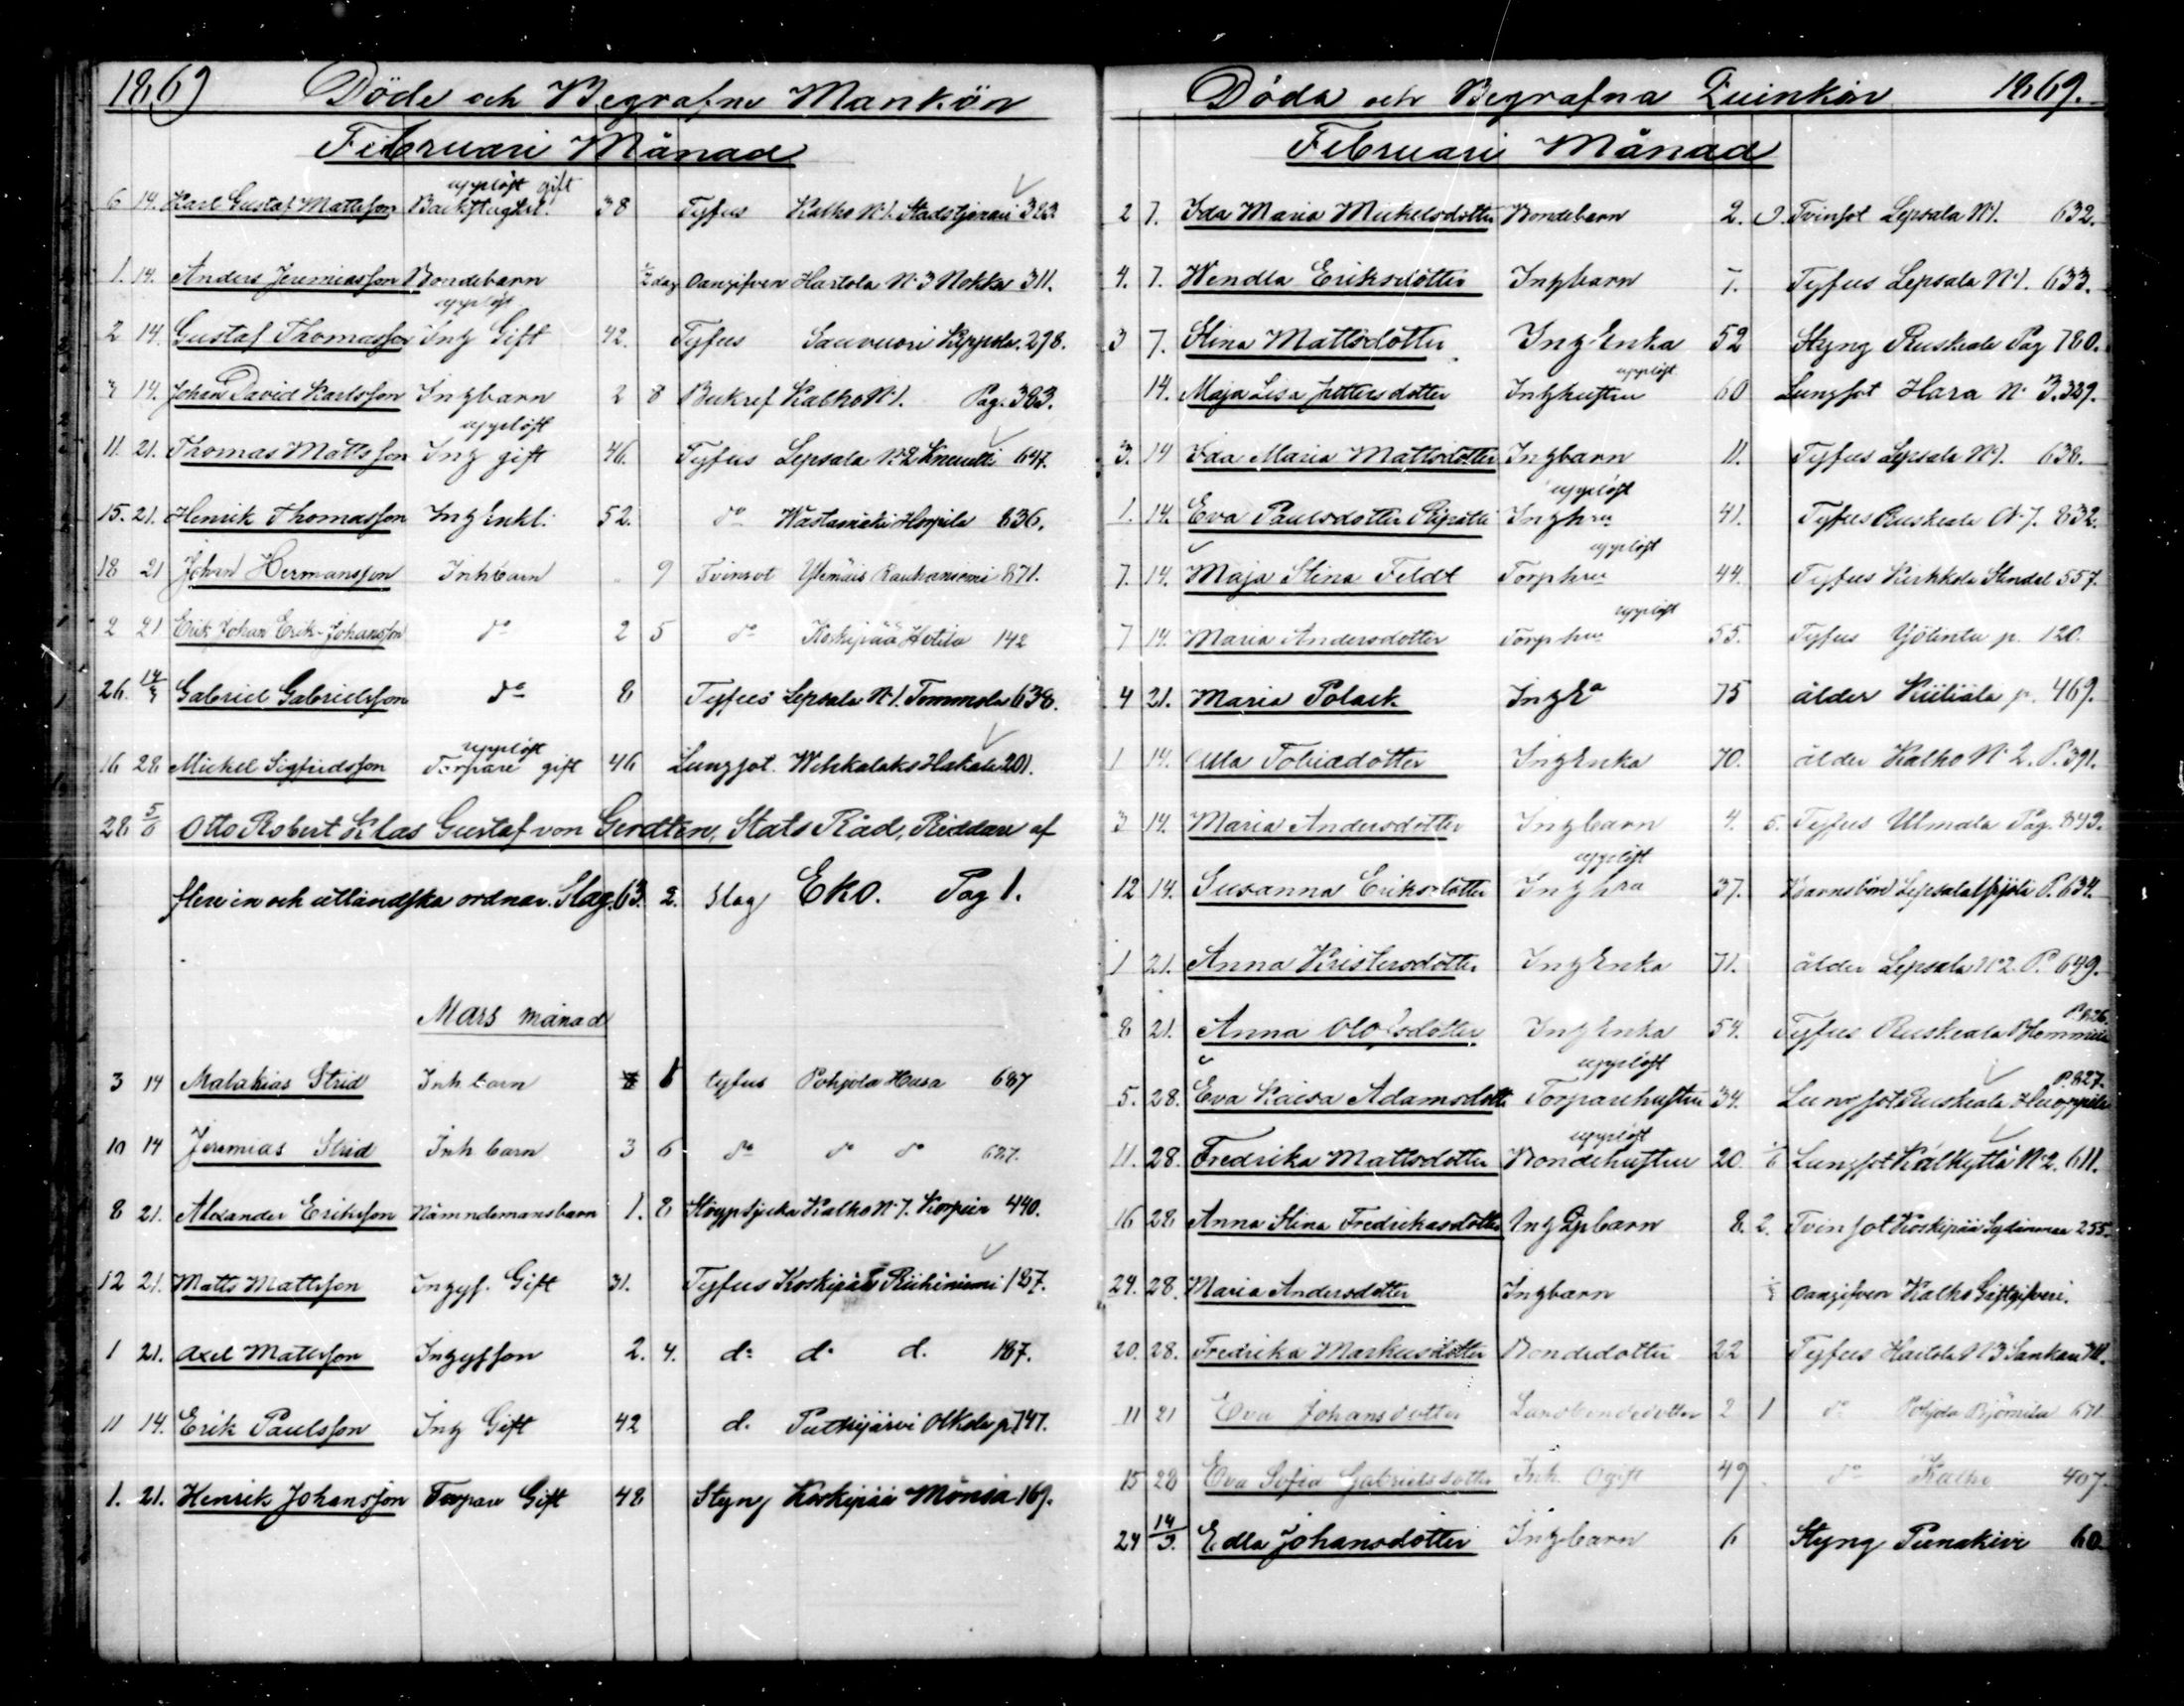 1869 Döde och Begrafne Mankön
Februari Månad
upplöst gift
6 14. Karl Gustaf Mattsson 38 Tyfus Kalho N:1. 383
1. 14. Anders Jeremiasson Bondebarn 1/2 dag Oangifven Hartola N:3 Nokka 311.
upplöst
2 14. Gustaf Thomasson Inh Gift 42. Tyfus Sauvuori 298.
7 14. Johan David Karlsson Inhbarn 2 8 Kalho N:1. Pag. 383.
upplöst
11. 21. Thomas Mattsson Inh gift 46. Tyfus Lepsala N:2 647.
15. 21. Henrik Thomasson Inh Enkl: 52. d:o Horpila 836.
18 21 Johan Hermansson Inhbarn 9 Tvinsot Ylemäis 871.
2 21 Erik Johan Erik-Johansson d:o 2 5 d:o Koskipää Hetila 142
26. 14/3 Gabriel Gabrielsson d:o 8 Tyfus Lepsala N:1. Tommola 638.
upplöst
16 28 Mickel Sigfridsson Torpare gift 46 Lungsot. Wehkalaks Hakala 201.
28 5/6 Otto Robert Klas Gustaf von Gerdten, Stats Råd, Riddare af
flere in och utländska ordnar. Slag. 63. 2. Slag EKO. Pag 1.
Mars månad
3 14 Malakias Strid Inhbarn 6 tyfus Pohjola Husa 687
10 14 Jeremias Strid Inh barn 3 6 d:o d:o d:o 687.
8 21. Alexander Eriksson Nämndemansbarn 1. 8 Kalho N:7. 440.
12 21. Matts Mattsson Inhys. Gift 31. Tyfus Koskipää Riihiniemi 187.
1 21. Axel Mattsson Inhysson 2. 4. d:o d:o d. 187.
11 14. Erik Paulsson Inh Gift 42 d. Putkijärvi Olkola p. 747.
1. 21. Henrik Johansson Torpare Gift 48 Styng Koskipää Mönsä 169.
Döda och Begrafna Quinkön 1869.
Februari Månad
2 7. Ida Maria Mickelsdotter Bondebarn 2. 9. Tvinsot Lepsala N:1. 632.
4. 7. Wendla Eriksdotter Inhbarn 7. Tyfus Lepsala N:1. 633.
3 7. Stina Mattsdotter Inh Enka 52 Styng Ruskeala Pag 780.
upplöst
14. Maja Lisa Pettersdotter Inhhustru 60 Lungsot Hara N: 3. 329.
3. 14 Ida Maria Mattsdotter Inhbarn 11. Tyfus Lepsala N:1. 638.
upplöst
1. 14. Eva Paulsdotter Inhhru 41. Tyfus Ruskeala N:7. 832.
upplöst
7. 14. Maja Stina Feldt Torphru 44. Tyfus Kirkkola Stendal 557.
upplöst
7 14. Maria Andersdotter Torphru 55. Tyfus p. 120.
4 21. Maria Polack Inh Ea 75 ålder Kiiliälä p. 469.
1 14. Ulla Tobiadotter Inh Enka 70. ålder Kalho N:2. P. 391.
3 14. Maria Andersdotter Inhbarn 4. 5. Tyfus Ulmala Pag. 849.
upplöst
12 14. Susanna Eriksdotter Inhhru 37. Barnsbörd Lepsala P. 634.
1 21. Anna Kristersdotter Inh Enka 71. ålder Lepsala N:2. P. 649.
8 21. Anna Olofsdotter Inh Enka 54. Tyfus Ruskeala P. 826.
upplöst
5. 28. Eva Kaisa Adamsdotter Torparehustru 34. Lungsot Ruskeala Huoppila P. 827.
upplöst
11. 28. Fredrika Mattsdotter Bondehustru 20. Lungsot Kälkyttä N:2. 611.
16 28 Anna Stina Fredrikasdotter 8. 2. Tvinsot Koskipää Sydänmaa 255.
24. 28. Maria Andersdotter Inhbarn Oangifven Kalho Gästgifveri.
20. 28. Fredrika Markusdotter Bondedotter 22 Tyfus Hartola N:3 Sankari 311.
11 21 Eva Johansdotter 2 1 d:o Pohjola Björnila 671
15 28 Eva Sofia Gabrielsdotter Inh. Ogift 49 d:o Kalho 407.
24 14/3. Edla Johansdotter Inhbarn 6 Styng Punakivi 60